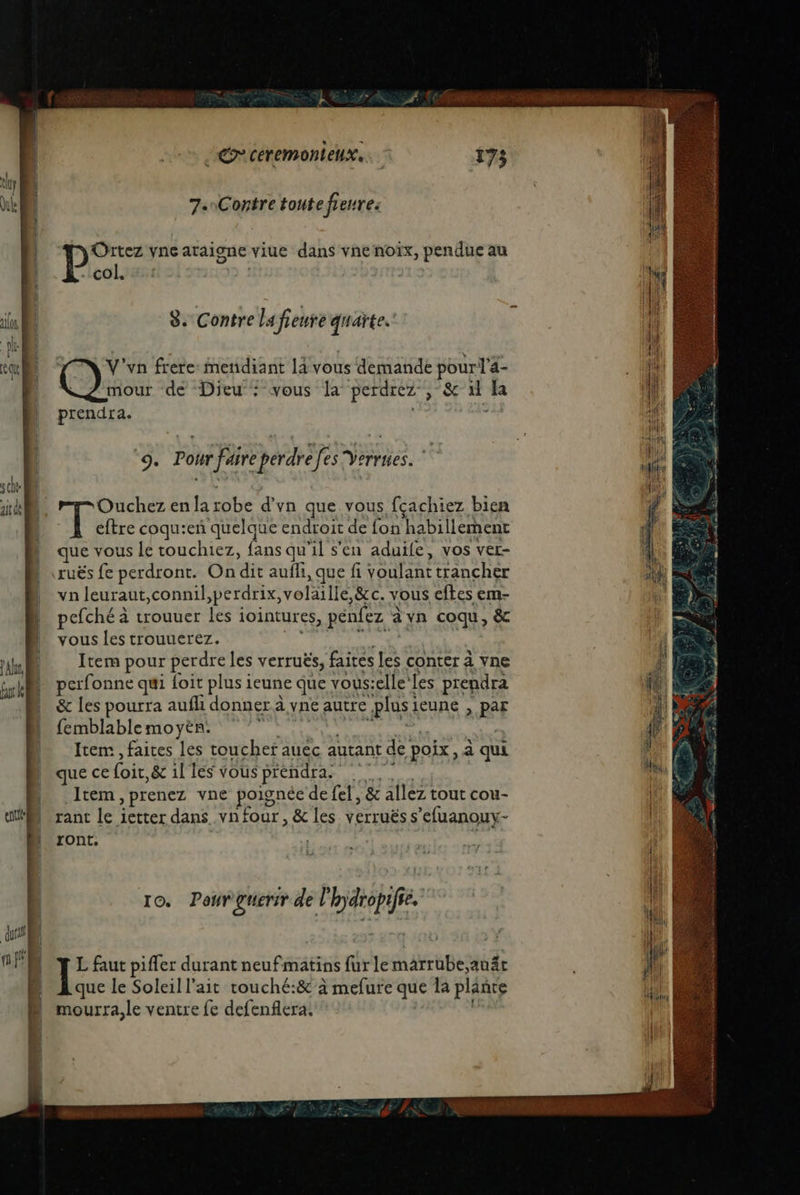 & ceremonieux. 173
7. Contre toute fieure.
POrtez vne araigne viue dans vne noix, pendue au
col.
8. Contre la fieure quarte.
QV'vn frere mendiant la vous demande pour l'a-
mour de Dieu : vous la perdrez, & il la
prendra.
9. Pour faire perdre ſes verrues.
TOuchez en la robe d'vn que vous ſçachiez bien
eſtre coqu:en quelque endroit de ſon habillement
que vous le touchiez, ſans qu'il s'en aduiſe, vos ver-
ruës ſe perdront. On dit auſſi, que ſi voulant trancher
vn leuraut,connil,perdrix,volaille,&c. vous eſtes em-
peſché à trouuer les iointures, penſez à vn coqu, &
vous les trouuerez.
Item pour perdre les verruës, faites les conter à vne
perſonne qui ſoit plus ieune que vous:elle les prendra
& les pourra auſſi donner à vne autre plus ieune, par
ſemblable moyen.
Item, faites les toucher auec autant de poix, à qui
que ce ſoit,& il les vous prendra.
Item, prenez vne poignée de ſel, & allez tout cou-
rant le ietter dans vn four, & les verruës s'eſuanouy-
ront.
10. Pour guerir de l'hydropiſie.
IL faut piſſer durant neuf matins ſur le marrube,auāt
que le Soleil l'ait touché:& à meſure que la plante
mourra,le ventre ſe deſenflera.